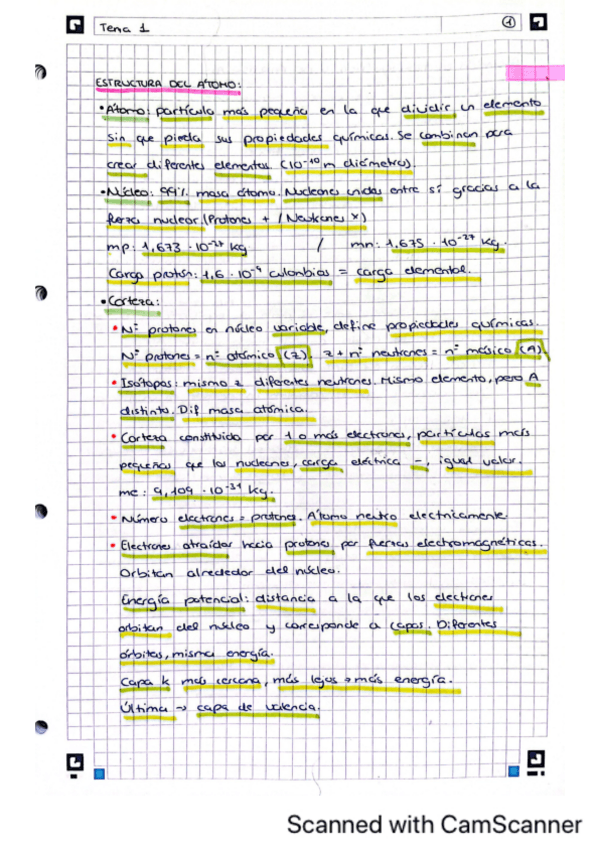 Tema 1
1
ESTRUCTURA DEL ÁTOMO:
• Átomo: partícula más pequeña en la que dividir un elemento
sin que pierda sus propiedades químicas. Se combinan para
crear diferentes elementos (10⁻¹⁰ m diámetro).
• Núcleo: 99% masa átomo. Nucleones unidos entre sí gracias a la
fuerza nuclear (Protones + / Neutrones x)
mp: 1,673 · 10⁻²⁷ kg / mn: 1,675 · 10⁻²⁷ kg.
Carga protón: 1,6 · 10⁻⁹ culombios = carga elemental.
• Corteza:
• Nº protones en núcleo variable, define propiedades químicas.
Nº protones = nº atómico (Z). Z + nº neutrones = nº másico (A)
• Isótopos: mismo z diferentes neutrones. Mismo elemento, pero A
distinto. Dif masa atómica.
• Corteza constituida por 1 o más electrones, partículas más
pequeñas que los nucleones, carga eléctrica -, igual valor.
me: 9,109 · 10⁻³¹ kg.
• Número electrones = protones. Átomo neutro electricamente.
• Electrones atraídos hacia protones por fuerzas electromagnéticas.
Orbitan alrededor del núcleo.
Energía potencial: distancia a la que los electrones
orbitan del núcleo y corresponde a capas. Diferentes
órbitas, misma energía.
Capa k más cercana, más lejos → más energía.
Última → capa de valencia.
Scanned with CamScanner